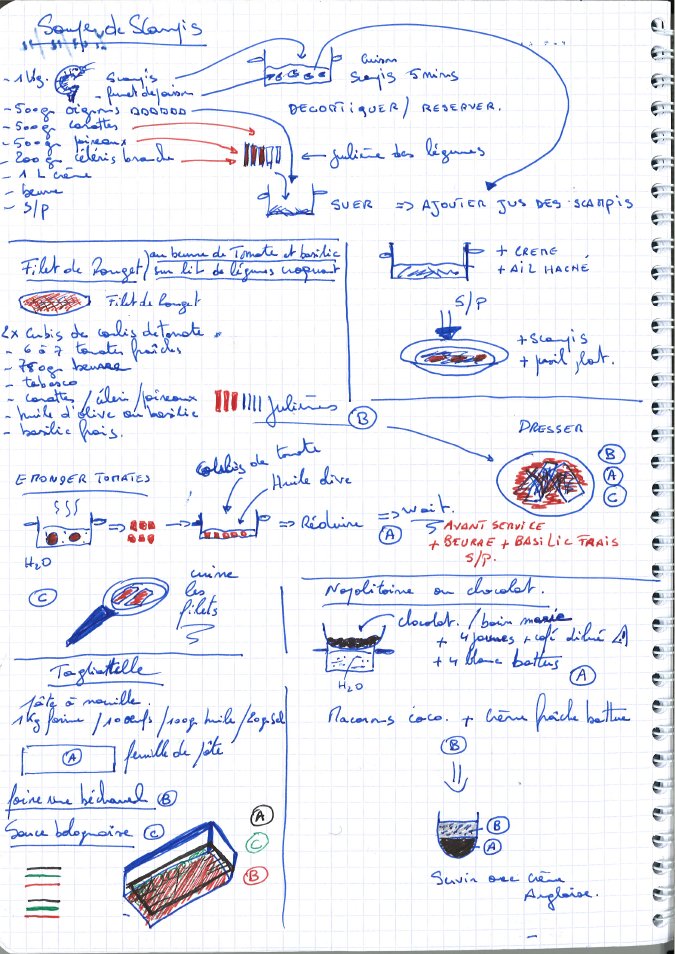 Soupe de Scampis
- 1 Kg. Scampis
- fumet de poisson
- 500gr oignons
- 500gr carottes
- 500gr poireaux
- 200gr céleris branche
- 1 L crème
- beurre
- S/P
cuisson
Scampis 5 mins
DECORTIQUER / RESERVER.
← Julienne des légumes
SUER => AJOUTER JUS DES SCAMPIS
+ CREME
+ AIL HACHÉ
S/P
+ Scampis
+ persil, lait.
Filet de Rouget / au beurre de Tomate et basilic
sur lit de légumes croquant
Filet de Rouget
2x cubis de coulis de tomate
- 6 à 7 tomates fraîches
- 750gr beurre
- tabasco
- carottes / céleri / poireaux
- huile d'olive au basilic
- basilic frais.
Juliènes
B
DRESSER
B
A
C
EMONDER TOMATES
H2O
Coulis de tomate
Huile olive
=> Réduire => wait.
A
AVANT SERVICE
+ BEURRE + BASILIC FRAIS
S/P.
C
cuire
les
filets
Napolitaine au chocolat.
chocolat. / bain marie
+ 4 jaunes + café dilué
+ 4 blanc battus
H2O
A
Macarons coco. + Crème fraîche battue
B
B
A
Servir avec crème
Anglaise.
Tagliattelle
pâte à nouille.
1kg farine / 10 oeufs / 100gr huile / 20gr sel
A
feuille de pâte
faire une béchamel B
Sauce bolognaise C
A
C
B